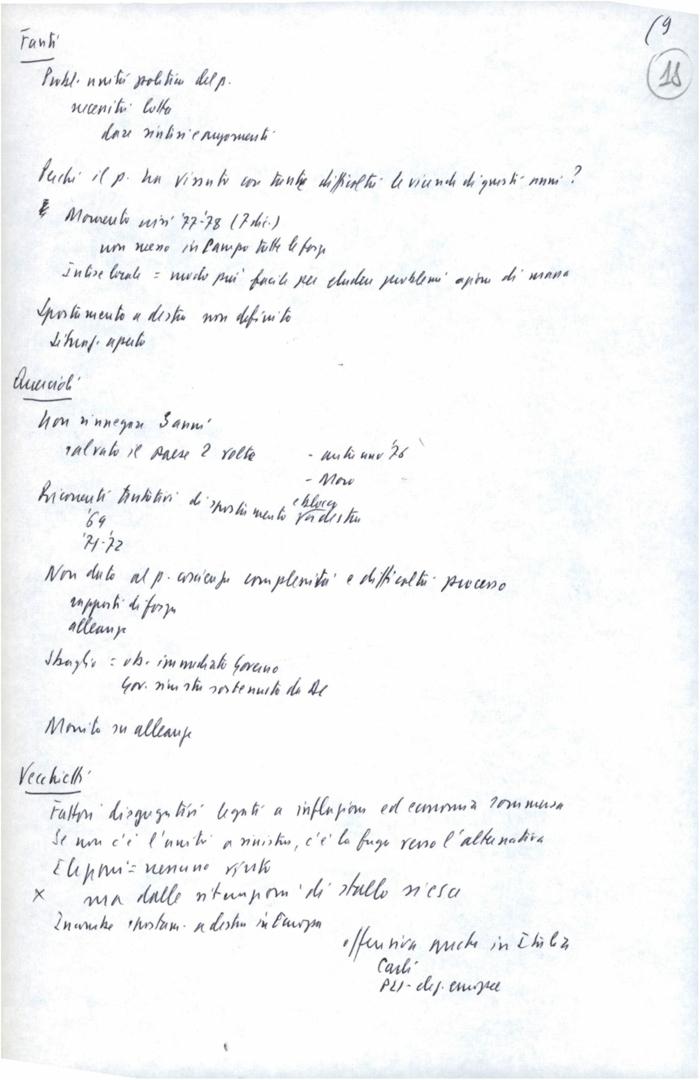 (9
18
Fanti
Probl. unità politica del p.
necessità lotta
dare sintesi e argomenti
Perché il p. ha vissuto con tante difficoltà le vicende di questi anni?
Momento crisi '77-'78 (7 dic.)
non messo in campo tutte le forze
Intese locali = modo più facile per eludere problemi azione di massa
Spostamento a destra non definito
Situaz. aperta
Quercioli
Non rinnegare 3 anni
salvato il Paese 2 volte - autunno '76
- Moro
Ricorrenti tentativi di spostamento e blocco
a destra
'69
'71-'72
Non dato al p. coscienza complessità e difficoltà processo
rapporti di forza
alleanze
Sbaglio = ob. immediato Governo
Gov. sinistra sostenuto da DC
Monito su alleanze
Vecchietti
Fattori disgregativi legati a inflazione ed economia sommersa
Se non c'è l'unità a sinistra, c'è la fuga verso l'alternativa
Elezioni = nessuno vinto
x ma dalle situazioni di stallo si esce
spostam. a destra in Europa
offensiva anche in Italia
Carli
PLI - elez. europee